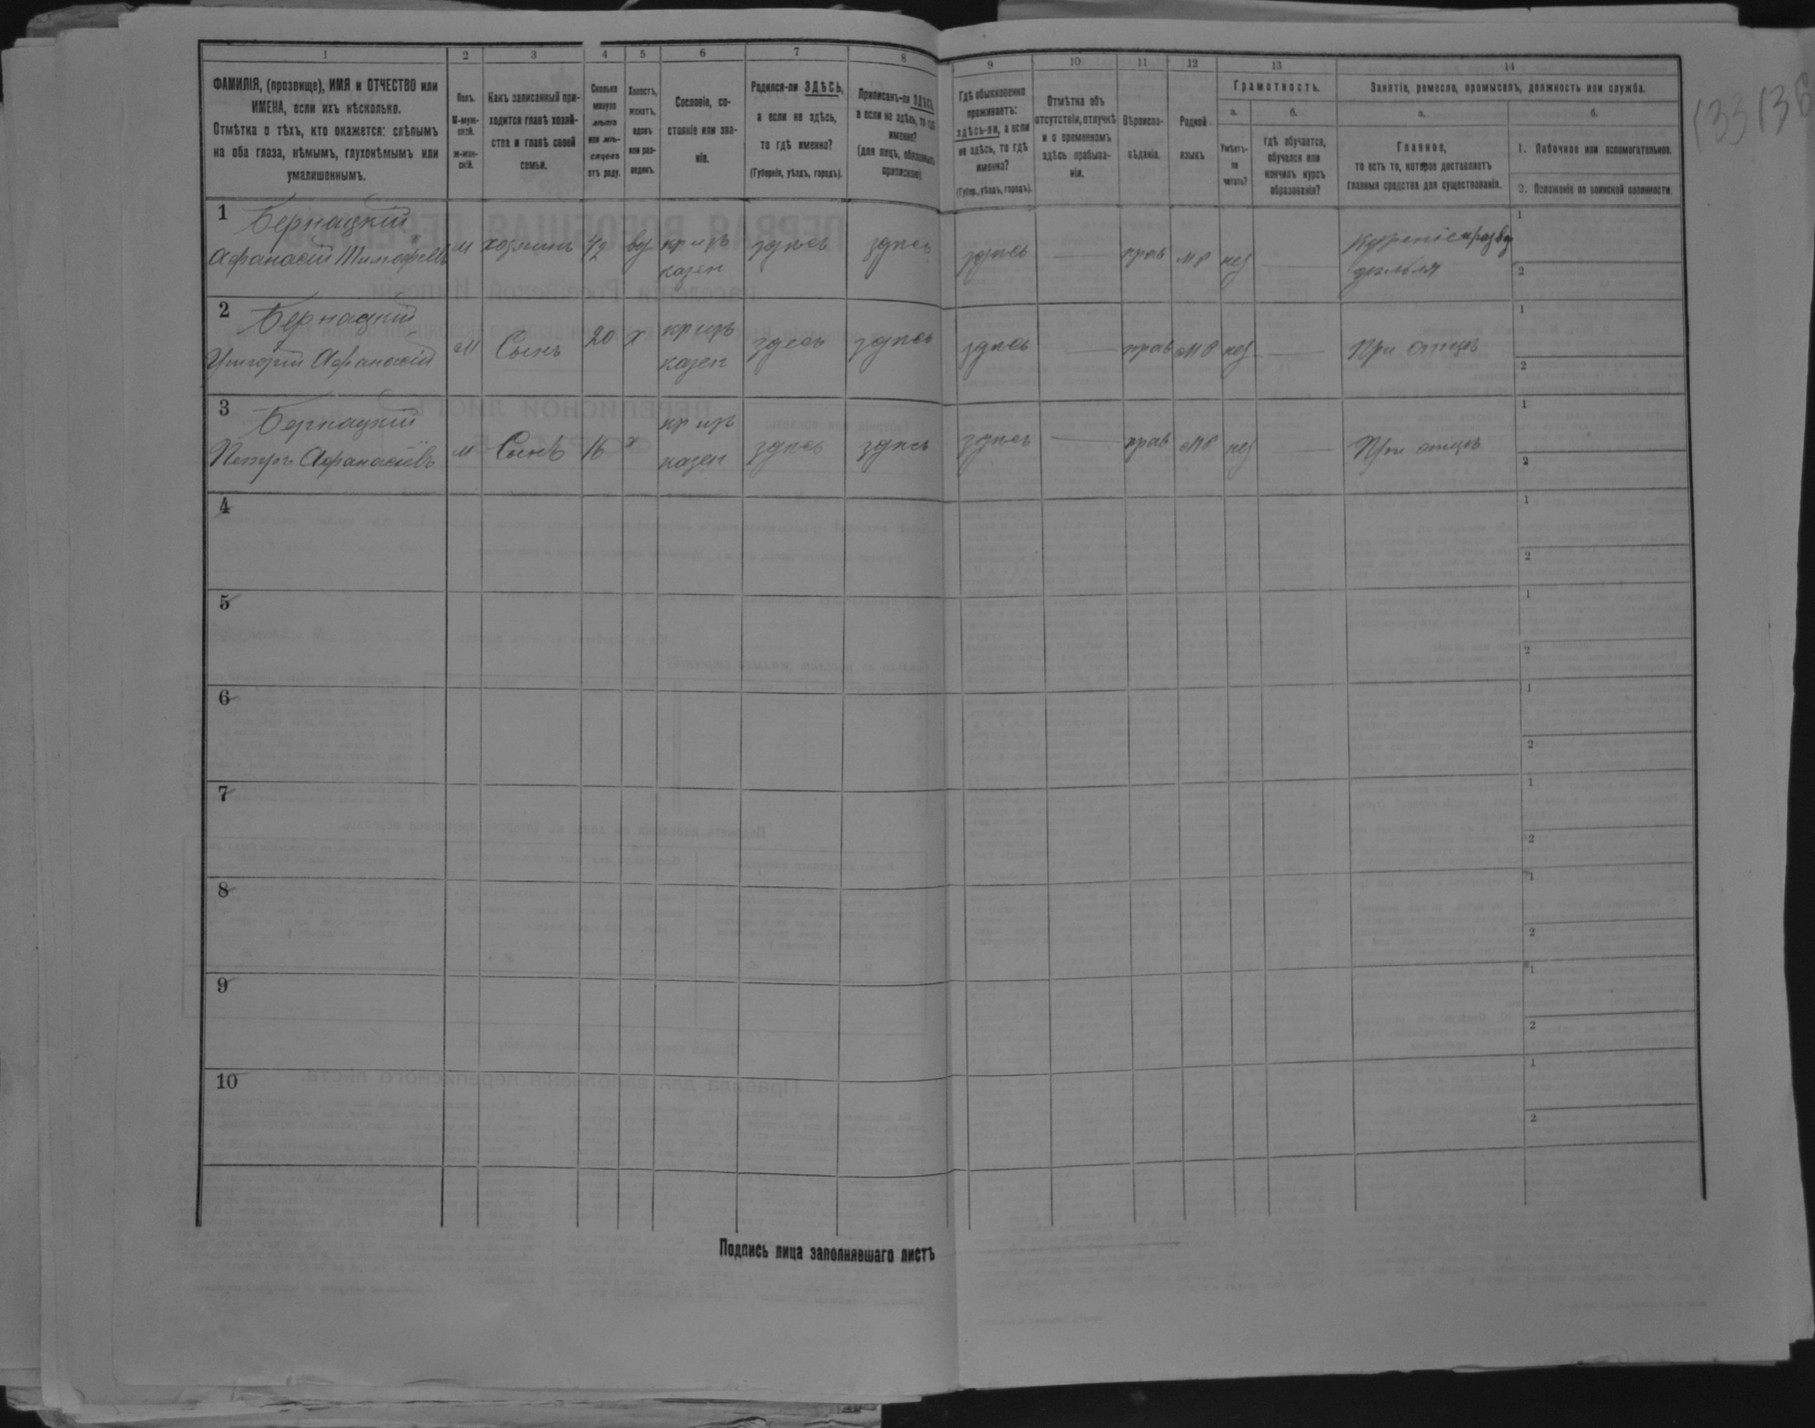 133 138
1
ФАМИЛІЯ, (прозвище), ИМЯ и ОТЧЕСТВО или
ИМЕНА, если ихъ нѣсколько.
Отмѣтка о тѣхъ, кто окажется: слѣпымъ
на оба глаза, нѣмымъ, глухонѣмымъ или
умалишеннымъ.
2
Полъ.
М-муж-
ской.
ж-жен-
скій.
3
Какъ записанный при-
ходится главѣ хозяй-
ства и главѣ своей
семьи.
4
Сколько
минуло
лѣтъ
или мѣ-
сяцевъ
отъ роду.
5
Холостъ,
женатъ,
вдовъ
или раз-
веденъ.
6
Сословіе, со-
стояніе или зва-
ніе.
7
Родился-ли ЗДѢСЬ,
а если не здѣсь,
то гдѣ именно?
(Губернія, уѣздъ, городъ).
8
Приписанъ-ли ЗДѢСЬ,
а если не здѣсь, то гдѣ
именно?
(для лицъ, обязанныхъ
припискою).
9
Гдѣ обыкновенно
проживаетъ:
здѣсь-ли, а если
не здѣсь, то гдѣ
именно?
(Губер., уѣздъ, городъ).
10
Отмѣтка объ
отсутствіи, отлучкѣ
и о временномъ
здѣсь пребыва-
ніи.
11
Вѣроиспо-
вѣданіе.
12
Родной
языкъ
13
Грамотность.
а.
Умѣетъ-
ли
читать?
б.
гдѣ обучается,
обучался или
кончилъ курсъ
образованія?
14
Занятіе, ремесло, промыселъ, должность или служба.
а.
Главное,
то есть то, которое доставляетъ
главныя средства для существованія.
б.
1. Побочное или вспомогательное.
2. Положеніе по воинской повинности.
1
Бернацкій
Афанасій Тимофеевъ
м
хозяинъ
42
вд
кр изъ
казен
здѣсь
здѣсь
здѣсь
—
прав
мр
нѣ
—
1
2
2
Бернацкій
Григорій Афанасій
м
Сынъ
20
х
кр изъ
казен
здесь
здѣсь
здѣсь
—
прав
мр
нѣ
—
При отцѣ
1
2
3
Бернацкій
Петръ Афанасіевъ
м
Сынъ
16
х
кр изъ
казен
здѣсь
здѣсь
здѣсь
—
прав
мр
нѣ
—
При отцѣ
1
2
4
1
2
5
1
2
6
1
2
7
1
2
8
1
2
9
1
2
10
1
2
Подпись лица заполнявшаго листъ